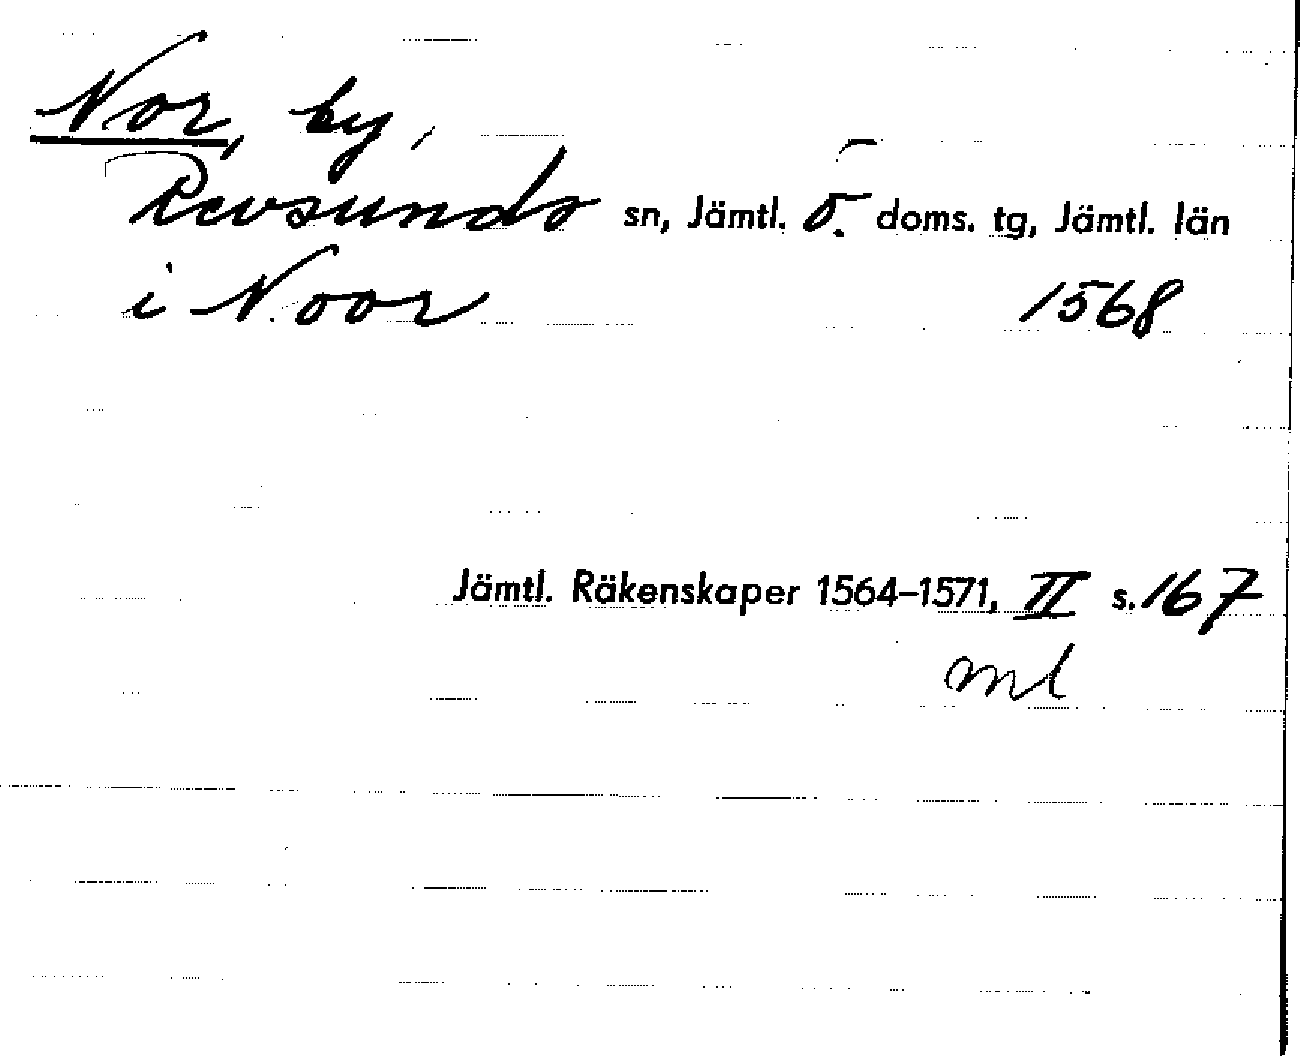 Nor, by,
Revsunds sn, Jämtl. ö. doms. tg, Jämtl. län
i Noor 1568
Jämtl. Räkenskaper 1564–1571, II s. 167
ml